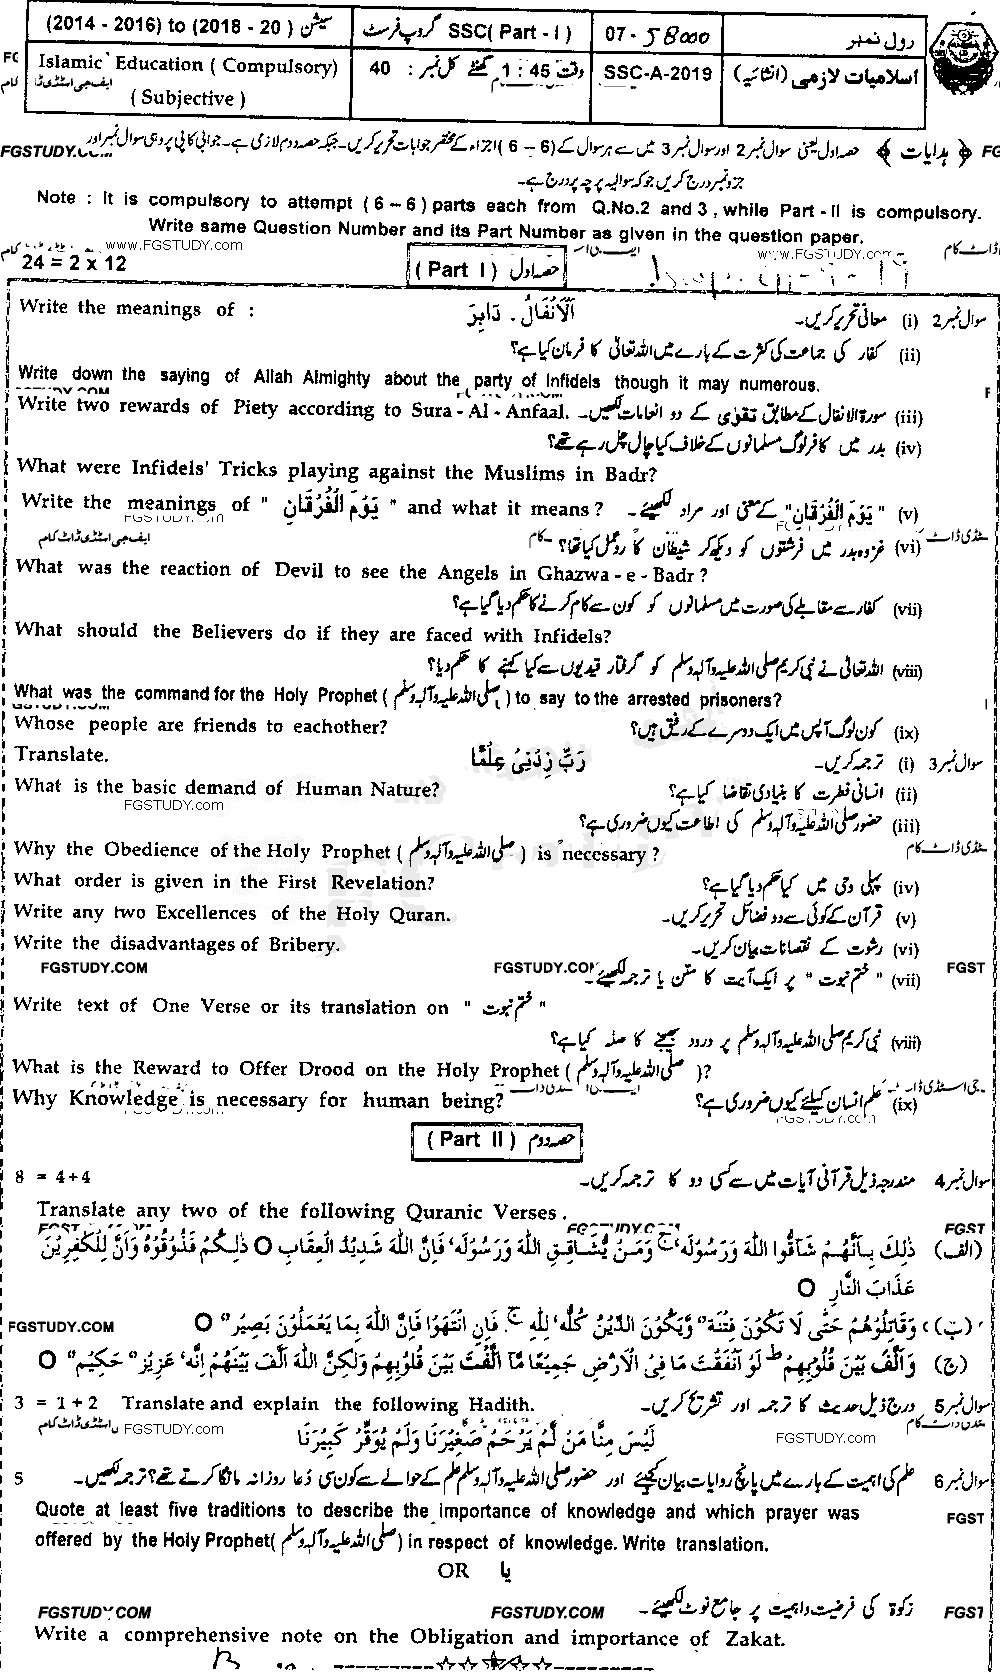 (2014 - 2016) to (2018 - 20 ) سیشن SSC( Part - I ) گروپ فرسٹ 07 - 58000 رول نمبر
Islamic Education ( Compulsory) 40 کل نمبر : وقت 1 : 45 گھنٹے SSC-A-2019 اسلامیات لازمی (انشائیہ)
( Subjective )
FGSTUDY.COM ﴿ ہدایات ﴾ حصہ اول یعنی سوال نمبر 2 اور سوال نمبر 3 میں سے ہر سوال کے (6 – 6) اجزاء کے مختصر جوابات تحریر کریں۔ جبکہ حصہ دوم لازمی ہے۔ جوابی کاپی پر وہی سوال نمبر اور
جزو نمبر درج کریں جو کہ سوالیہ پرچہ پر درج ہے۔
Note : It is compulsory to attempt ( 6 – 6 ) parts each from Q.No.2 and 3 , while Part - II is compulsory.
Write same Question Number and its Part Number as given in the question paper.
www.FGSTUDY.com
24 = 2 x 12 ( Part I ) حصہ اول
Write the meanings of : اَلْاَنْفَالُ . دَابِرَ سوال نمبر 2 (i) معانی تحریر کریں۔
(ii) کفار کی جماعت کی کثرت کے بارے میں اللہ تعالیٰ کا فرمان کیا ہے؟
Write down the saying of Allah Almighty about the party of Infidels though it may numerous.
Write two rewards of Piety according to Sura - Al - Anfaal. (iii) سورۃ الانفال کے مطابق تقوٰی کے دو انعامات لکھیں۔
(iv) بدر میں کافر لوگ مسلمانوں کے خلاف کیا چال چل رہے تھے؟
What were Infidels' Tricks playing against the Muslims in Badr?
Write the meanings of " يَوْمَ الْفُرْقَانِ " and what it means ? (v) "يَوْمَ الْفُرْقَانِ" کے معنی اور مراد لکھیئے۔
(vi) غزوہ بدر میں فرشتوں کو دیکھ کر شیطان کا ردعمل کیا تھا؟
What was the reaction of Devil to see the Angels in Ghazwa - e - Badr ?
(vii) کفار سے مقابلے کی صورت میں مسلمانوں کو کون سے کام کرنے کا حکم دیا گیا ہے؟
What should the Believers do if they are faced with Infidels?
(viii) اللہ تعالیٰ نے نبی کریم صلی اللہ علیہ وآلہ وسلم کو گرفتار قیدیوں سے کیا کہنے کا حکم دیا؟
What was the command for the Holy Prophet ( صلی اللہ علیہ وآلہ وسلم ) to say to the arrested prisoners?
Whose people are friends to eachother? (ix) کون لوگ آپس میں ایک دوسرے کے رفیق ہیں؟
Translate. رَبِّ زِدْنِىْ عِلْمًا سوال نمبر 3 (i) ترجمہ کریں۔
What is the basic demand of Human Nature? (ii) انسانی فطرت کا بنیادی تقاضا کیا ہے؟
FGSTUDY.com
(iii) حضور صلی اللہ علیہ وآلہ وسلم کی اطاعت کیوں ضروری ہے؟
Why the Obedience of the Holy Prophet ( صلی اللہ علیہ وآلہ وسلم ) is necessary ?
What order is given in the First Revelation? (iv) پہلی وحی میں کیا حکم دیا گیا ہے؟
Write any two Excellences of the Holy Quran. (v) قرآن کے کوئی سے دو فضائل تحریر کریں۔
Write the disadvantages of Bribery. (vi) رشوت کے نقصانات بیان کریں۔
FGSTUDY.COM FGSTUDY.COM FGST (vii) "ختم نبوت" پر ایک آیت کا متن یا ترجمہ لکھیئے۔
Write text of One Verse or its translation on " ختم نبوت "
(viii) نبی کریم صلی اللہ علیہ وآلہ وسلم پر درود بھیجنے کا صلہ کیا ہے؟
What is the Reward to Offer Drood on the Holy Prophet ( صلی اللہ علیہ وآلہ وسلم )?
Why Knowledge is necessary for human being? (ix) علم انسان کیلئے کیوں ضروری ہے؟
( Part II ) حصہ دوم
8 = 4+4 سوال نمبر 4 مندرجہ ذیل قرآنی آیات میں سے کسی دو کا ترجمہ کریں۔
Translate any two of the following Quranic Verses .
(الف) ذٰلِكَ بِاَنَّهُمْ شَاقُّوا اللّٰهَ وَرَسُوْلَهٗ ۚ وَمَنْ يُّشَاقِقِ اللّٰهَ وَرَسُوْلَهٗ فَاِنَّ اللّٰهَ شَدِيْدُ الْعِقَابِ O ذٰلِكُمْ فَذُوْقُوْهُ وَاَنَّ لِلْكٰفِرِيْنَ
عَذَابَ النَّارِ O
FGSTUDY.COM (ب) وَقَاتِلُوْهُمْ حَتّٰى لَا تَكُوْنَ فِتْنَةٌ وَّيَكُوْنَ الدِّيْنُ كُلُّهٗ لِلّٰهِ ۚ فَاِنِ انْتَهَوْا فَاِنَّ اللّٰهَ بِمَا يَعْمَلُوْنَ بَصِيْرٌ O
(ج) وَاَلَّفَ بَيْنَ قُلُوْبِهِمْ ط لَوْ اَنْفَقْتَ مَا فِى الْاَرْضِ جَمِيْعًا مَّا اَلَّفْتَ بَيْنَ قُلُوْبِهِمْ وَلٰكِنَّ اللّٰهَ اَلَّفَ بَيْنَهُمْ اِنَّهٗ عَزِيْزٌ حَكِيْمٌ O
3 = 1 + 2 Translate and explain the following Hadith. سوال نمبر 5 درج ذیل حدیث کا ترجمہ اور تشریح کریں۔
FGSTUDY.com لَيْسَ مِنَّا مَنْ لَّمْ يَرْحَمْ صَغِيْرَنَا وَلَمْ يُوَقِّرْ كَبِيْرَنَا FGSTUDY.com
5 سوال نمبر 6 علم کی اہمیت کے بارے میں پانچ روایات بیان کیجئے اور حضور صلی اللہ علیہ وآلہ وسلم علم کے حوالے سے کون سی دُعا روزانہ مانگا کرتے تھے؟ ترجمہ لکھیں۔
Quote at least five traditions to describe the importance of knowledge and which prayer was
offered by the Holy Prophet( صلی اللہ علیہ وآلہ وسلم ) in respect of knowledge. Write translation.
OR یا
زکوٰۃ کی فرضیت و اہمیت پر جامع نوٹ لکھیئے۔
FGSTUDY.COM FGSTUDY.COM FGST
Write a comprehensive note on the Obligation and importance of Zakat.